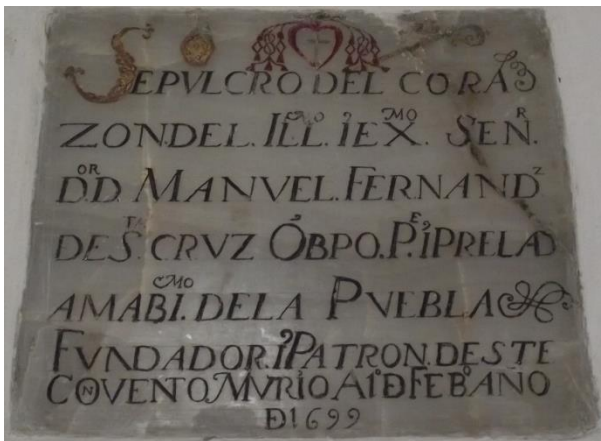 SEPVLCRO DEL CORA
ZON.DEL. ILL.MO I EX.MO SEN.R
D.OR D. MANVEL. FERNANDZ
DE S.TA CRVZ ÓBPO. P.E I PRELAD
AMABI.MO DE LA PVEBLA
FVNDADOR. I PATRON. DESTE
CONVENTO MVRIO A 1º Ð FEBº AÑO
Ð 1699